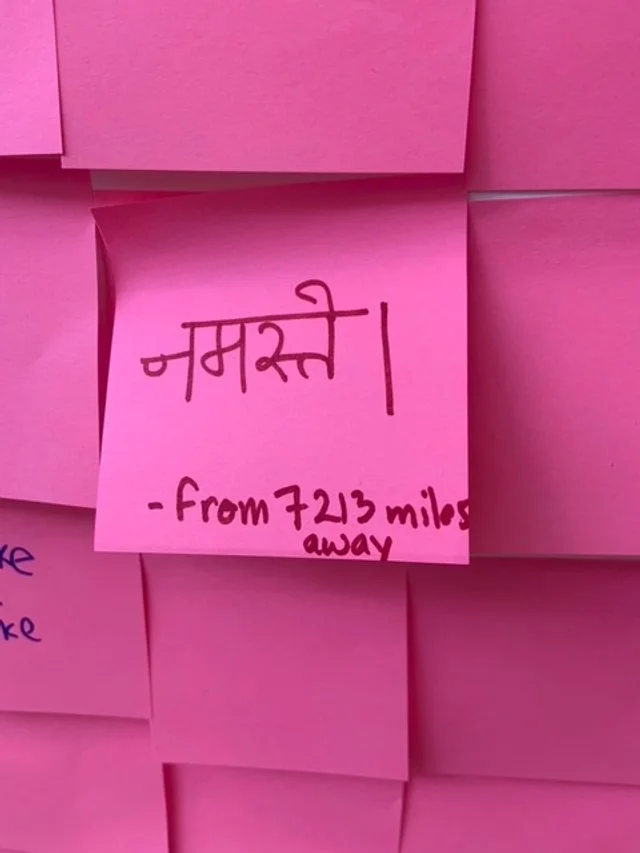 नमस्ते।
- from 7213 miles
away